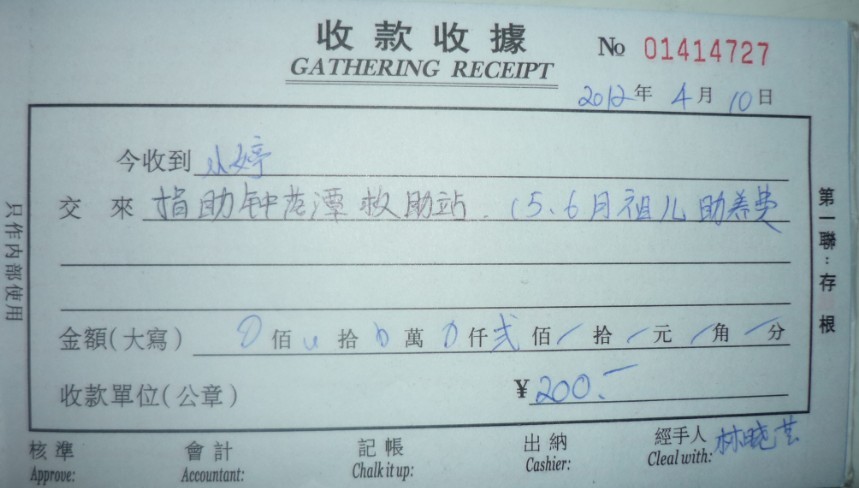 收款收據
GATHERING RECEIPT
№ 01414727
2012年 4月 10日
今收到 小婷
交來 捐助钟落潭救助站. (5、6月祖儿助养费
金額(大寫) 0佰0拾0萬0仟弍佰/拾/元/角/分
收款單位(公章) ¥200.-
核準 會計 記帳 出納 經手人 林晓芸
Approve: Accountant: Chalk it up: Cashier: Cleal with:
只作內部使用
第一聯:存根